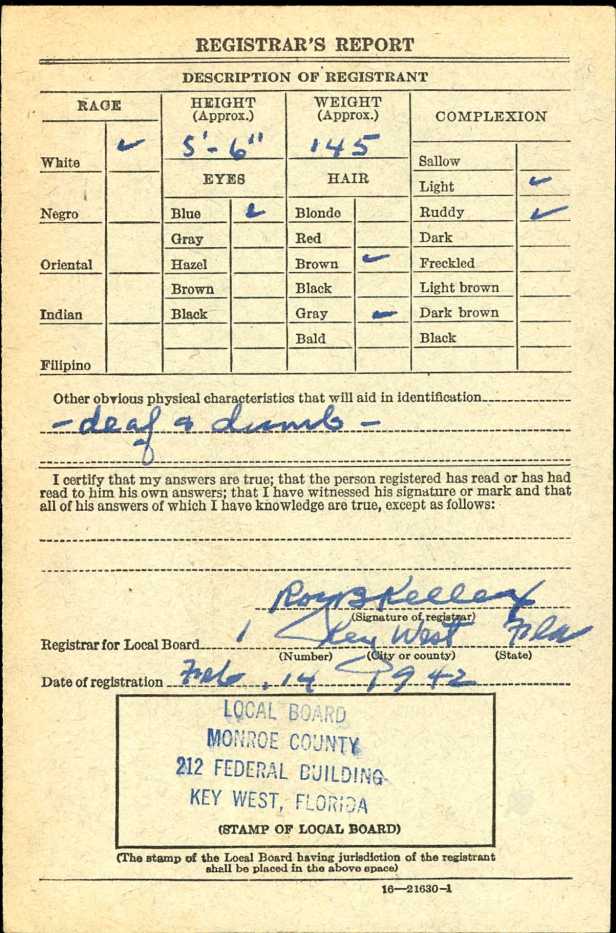 REGISTRAR'S REPORT
DESCRIPTION OF REGISTRANT
RACE HEIGHT (Approx.) WEIGHT (Approx.) COMPLEXION
White ✓ 5'-6" 145 Sallow
EYES HAIR Light ✓
Negro Blue ✓ Blonde Ruddy ✓
Gray Red Dark
Oriental Hazel Brown ✓ Freckled
Brown Black Light brown
Indian Black Gray ✓ Dark brown
Bald Black
Filipino
Other obvious physical characteristics that will aid in identification
- deaf & dumb -
I certify that my answers are true; that the person registered has read or has had
read to him his own answers; that I have witnessed his signature or mark and that
all of his answers of which I have knowledge are true, except as follows:
Roy B Kelley
(Signature of registrar)
Registrar for Local Board 1 Key West Fla
(Number) (City or county) (State)
Date of registration Feb. 14 1942
LOCAL BOARD
MONROE COUNTY
212 FEDERAL BUILDING
KEY WEST, FLORIDA
(STAMP OF LOCAL BOARD)
(The stamp of the Local Board having jurisdiction of the registrant
shall be placed in the above space)
16—21630-1